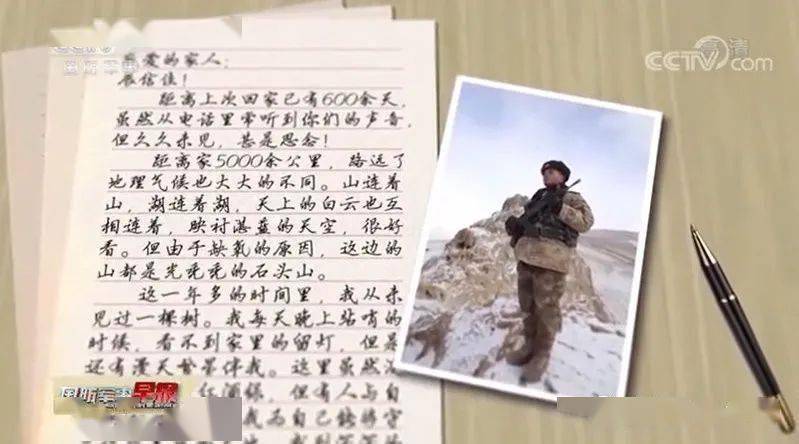 高清
CCTV.com
爱的家人:
展信佳!
距离上次回家已有600余天,
虽然从电话里常听到你们的声音,
但久久未见,甚是思念!
距离家5000余公里,路远了
地理气候也大大的不同。山连着
山,湖连着湖,天上的白云也互
相连着,映衬湛蓝的天空,很好
看。但由于缺氧的原因,这边的
山都是光秃秃的石头山。
这一年多的时间里,我从未
见过一棵树。我每天晚上站哨的
时候,看不到家里的留灯,但是
还有漫天繁星伴我。这里虽然
红酒绿,但有人与自
国防军事早报
我为自己能